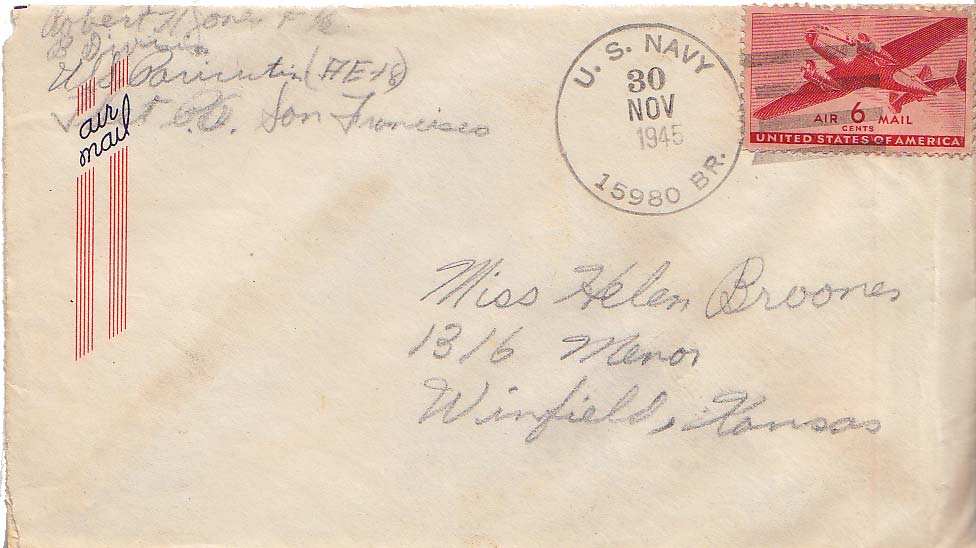 Robert H Jones F 1/c
B Division
USS Paricutin (AE-18)
P.O. San Francisco
air
mail
U.S. NAVY
30
NOV
1945
15980 BR.
AIR 6 MAIL
CENTS
UNITED STATES OF AMERICA
Miss Helen Broones
1316 Menor
Winfield, Kansas